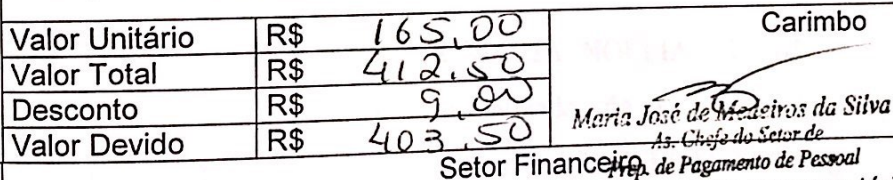 Valor Unitário R$ 165,00
Valor Total R$ 412,50
Desconto R$ 9,00
Valor Devido R$ 403,50
Carimbo
Maria José de Medeiros da Silva
As. Chefe do Setor de
Prep. de Pagamento de Pessoal
Setor Financeiro